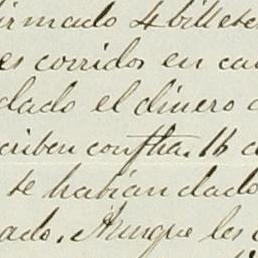 irmado 4 billetes
es corridos en ca
dado el dinero
criben con fha. 16
se habian dado
ado. Aunque les